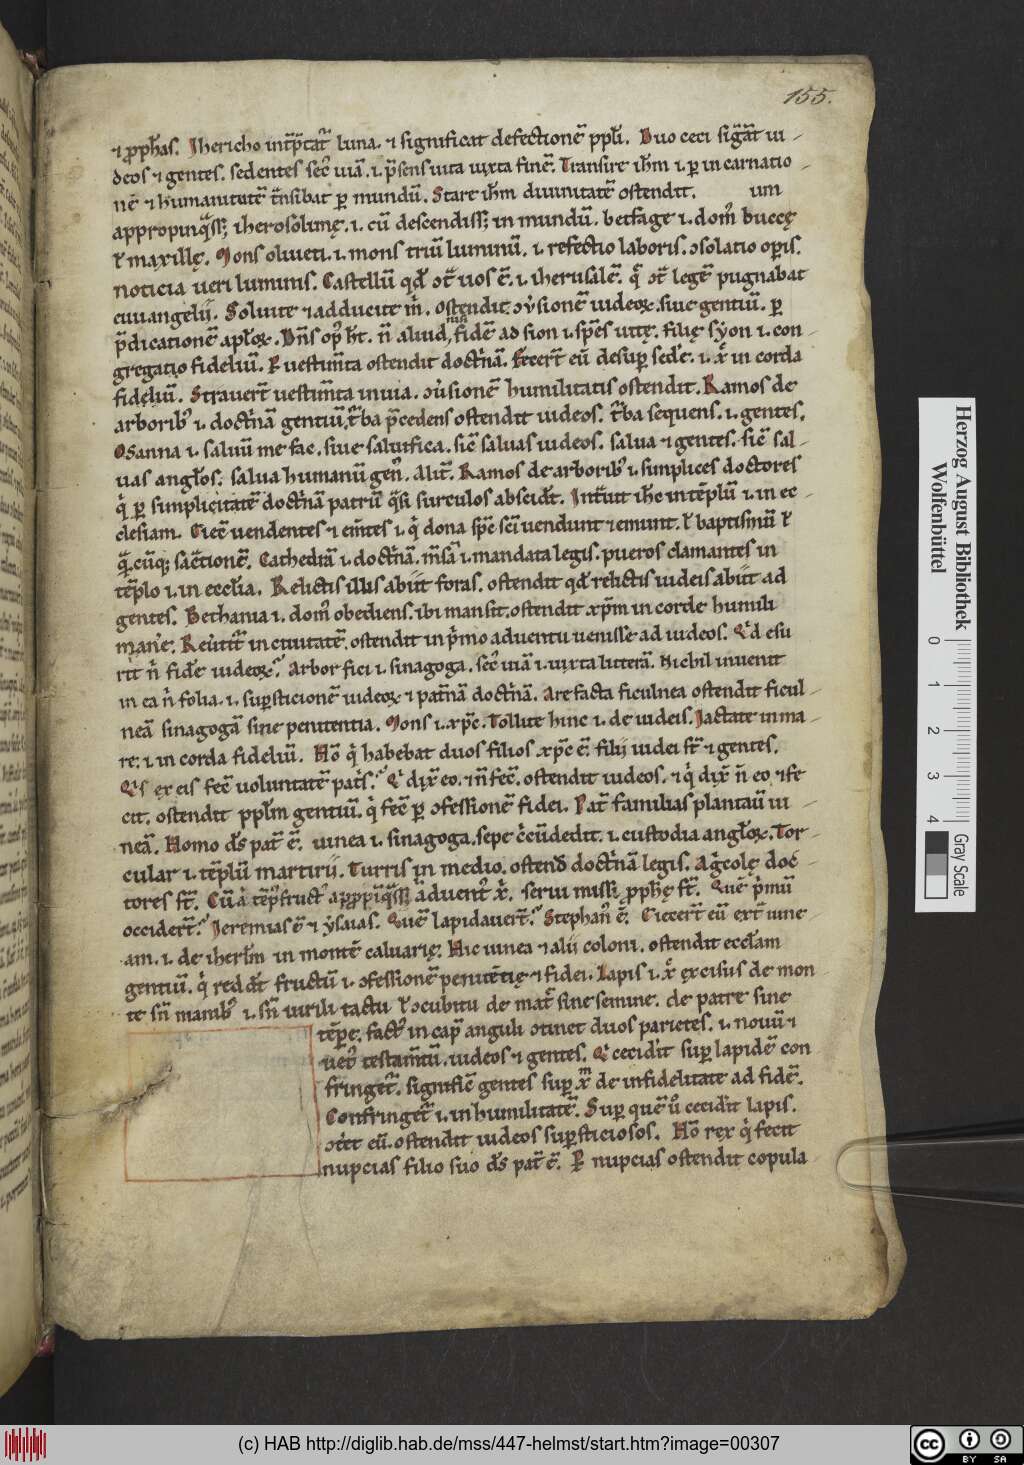 155.
⁊ ꝓph̄as. Jhericho int̄p̄tat̄ luna. ⁊ significat defectionē pp̄li. Duo ceci siḡāt iu-
deos ⁊ gentes. sedentes sec̄ uiā .i. p̄sens uita iuxta finē. Transire ih̄m .i. ꝑ in carnatio-
nē ⁊ humanitatē t̄nsibat ꝑ mundū. Stare ih̄m diuinitatē ostendit. um
appropinq̄ss; iherosolimę .i. cū descendiss; in mundū. betfage .i. dom᷒ buccę
ł maxillę. Mons oliueti .i. mons triū luminū. .i. refectio laboris. ↄsolatio oꝑis.
noticia ueri luminis. Castellū qd̄ ↄt̄ uos ē .i. iherusalē. q̄ ↄt̄ legē pugnabat
euuangelii. Soluite ⁊ adducite m̄. ostendit ↄūsionē iudeoꝝ siue gentiū. ꝑ
p̄dicationē apl̄oꝝ. Dn̄s op᷒ h̄t. n̄ aliud, nisi fidē ad sion .i. sp̄es uitę. filię syon .i. con-
gregatio fideliū. Ꝑ uestim̄ta ostendit doct̄nā. Fecer̄t eū desuꝑ sedē. .i. x̄ in corda
fideliū. Strauer̄t uestim̄ta in uia. ↄūsionē humilitatis ostendit. Ramos de
arborib᷒ .i. doct̄nā gentiū, t̄ba p̄cedens ostendit iudeos. t̄ba sequens .i. gentes.
Osanna .i. saluū me fac. siue saluifica. sic̄ saluas iudeos. salua ⁊ gentes. sic̄ sal-
uas angl̄os. salua humanū gen᷒. Alit̄. Ramos de arborib᷒ .i. simplices doctores
q̄ ꝑ simplicitatē doct̄nā patrū q̄si surculos abscid̄t. Int̄uit ih̄c in tēplū .i. in ec-
clesiam. Eiec̄ uendentes ⁊ em̄tes .i. q̄ dona sp̄c sc̄i uendunt ⁊ emunt. ł baptismū ł
q̄cūq; sac̄tionē. Cathedrā .i. doct̄nā. m̄sā .i. mandata legis. pueros clamantes in
tēplo .i. in eccl̄ia. Relictis illis abiit foras. ostendit qd̄ relictis iudeis abiit ad
gentes. Bethania .i. dom᷒ obediens. ibi mansit. ostendit xp̄m in corde humili
manē. Reūtit̄ in ciuitatē. ostendit in p̄mo aduentu uenisse ad iudeos. Qd̄ esu
rit n̄ fidē iudeoꝝ. Arbor fici .i. sinagoga. sec̄ uiā .i. iuxta litterā. Nichil inuenit
in ea n̄ folia. .i. suꝑsticionē iudeoꝝ ⁊ pat̄nā doct̄nā. Arefacta ficulnea ostendit ficul-
neā sinagogā sine penitentia. Mons .i. xp̄c. Tollite hinc .i. de iudeis. Jactate in ma-
re: .i. in corda fideliū. Hō q̄ habebat duos filios xp̄c ē filii iudei st̄ ⁊ gentes.
Q̄s ex eis fec̄ uoluntatē pat̄s. Q̄ dix̄ eo. ⁊ n̄ fec̄. ostendit iudeos. ⁊ q̄ dix̄ n̄ eo ⁊ fe
cit. ostendit ppl̄m gentiū. q̄ fec̄ ꝑ ↄfessionē fidei. Pat̄ familias plantau̅ ui-
neā. Homo d̄s pat̄ ē. uinea .i. sinagoga. sepe c̄cūdedit. .i. custodia angl̄oꝝ. Tor-
cular .i. tēplū martirii. Turris in medio. ostend̄ doct̄nā legis. Aḡcolę doc-
tores st̄. Cū ā tēp᷒ fruct᷒ appropīq̄ss; aduent᷒ x̄. serui missi ꝓph̄ę st̄. Quē p̄mū
occider̄t. Jeremias ē ⁊ ysaias. Quē lapidauer̄t. Stephan᷒ ē. Eiecer̄t eū ext̄ uine-
am. .i. de iherl̄m in montē caluarię. Hic uinea ⁊ alii coloni. ostendit eccl̄am
gentiū. q̄ redd̄t fructū .i. ↄfessionē penitētię ⁊ fidei. Lapis .i. x̄ excisus de mon
te sn̄ manib᷒ .i. sn̄ uirili tactu ł ↄcubitu de mat̄ sine semine. de patre sine
tēpe. fact᷒ in cap̄ anguli ↄtinet duos parietes. .i. nouū ⁊
uet᷒ testam̄tū. iudeos ⁊ gentes. Q̄ cecidit suꝑ lapidē con
fringet̄. signific̄ gentes suꝑ x̄m de infidelitate ad fidē.
Confringet̄ .i. in humilitatē. Suꝑ quē u᷒ cecidit lapis.
ↄt̄et eū. ostendit iudeos suꝑsticiosos. Hō rex q̄ fecit
nupcias filio suo d̄s pat̄ ē. Ꝑ nupcias ostendit copula
Herzog August Bibliothek
Wolfenbüttel
0 1 2 3 4
Gray Scale
(c) HAB http://diglib.hab.de/mss/447-helmst/start.htm?image=00307
cc BY SA